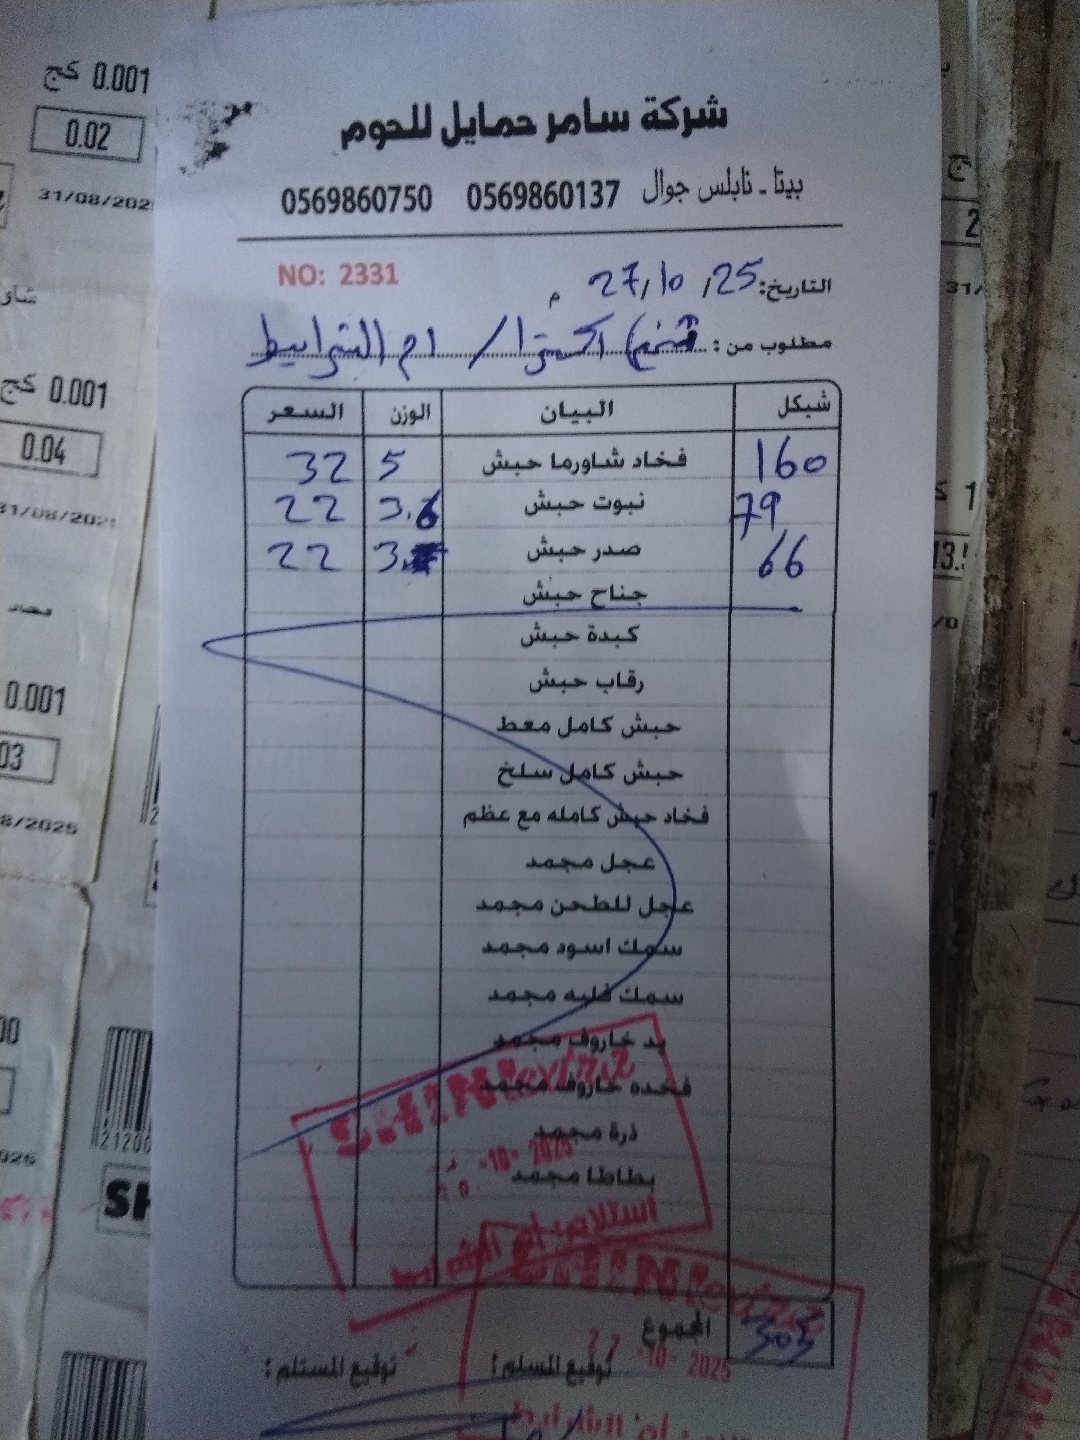 شركة سامر حمايل للحوم
بيتا - نابلس جوال 0569860137 0569860750
NO: 2331
التاريخ: 27/10/25 م
مطلوب من: اكسترا / ام الشرايط
شيكل البيان الوزن السعر
160 فخاد شاورما حبش 5 32
79 نبوت حبش 3.6 22
66 صدر حبش 3. 22
جناح حبش
كبدة حبش
رقاب حبش
حبش كامل معط
حبش كامل سلخ
فخاد حبش كامله مع عظم
عجل مجمد
عجل للطحن مجمد
سمك اسود مجمد
سمك فليه مجمد
يد خاروف مجمد
فخده خاروف مجمد
ذرة مجمد
بطاطا مجمد
-10- 2025
استلام ام الشرايط
المجموع 305
توقيع المسلم: توقيع المستلم:
27 -10- 2025
0.001 كج
0.02
31/08/202
0.001 كج
0.04
31/08/2025
0.001
03
8/2025
21200
SH